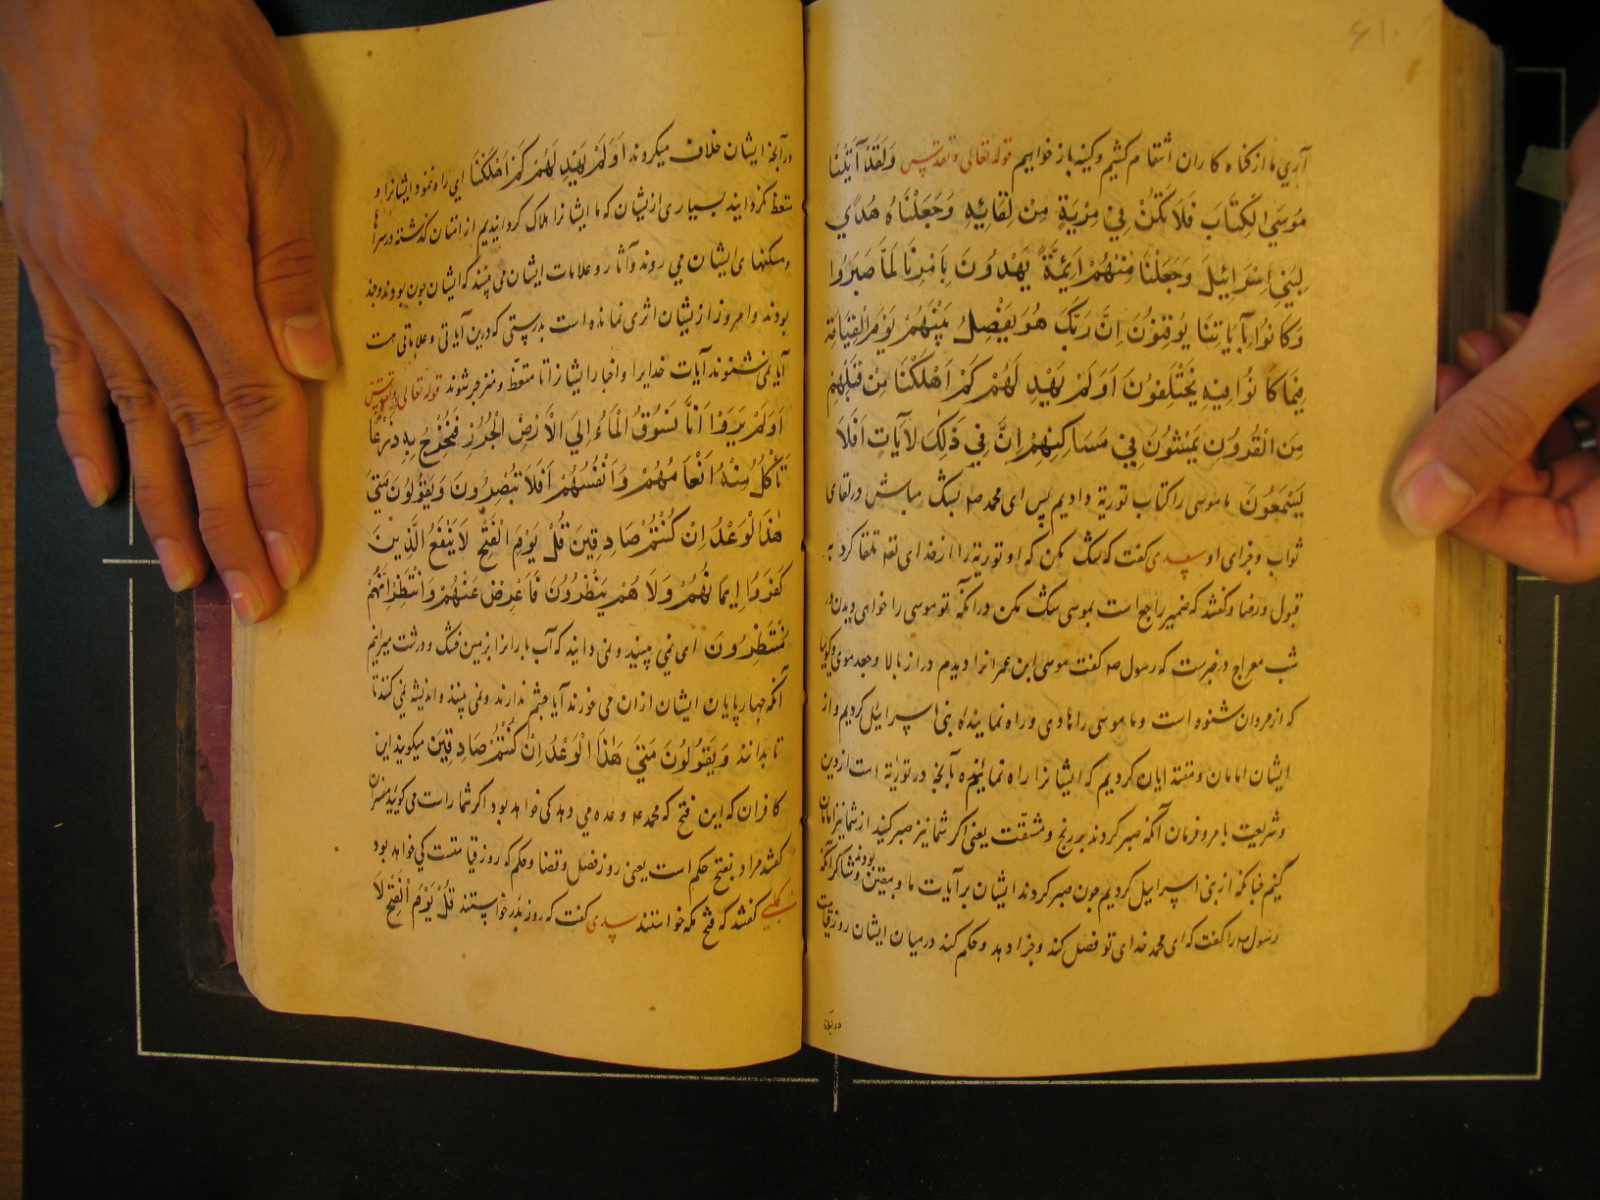 ۶۱۰
آری ما از کناه کاران انتقام کشیم و کینه باز خواهیم قوله تعالی و تقدس وَلَقَدْ آتَيْنَا
مُوسَي الْكِتَابَ فَلَا تَكُنْ فِي مِرْيَةٍ مِنْ لِقَائِهِ وَجَعَلْنَاهُ هُدًي
لِبَنِي اِسْرَائِيلَ وَجَعَلْنَا مِنْهُمْ اَئِمَّةً يَهْدُونَ بِاَمْرِنَا لَمَّا صَبَرُوا
وَكَانُوا بِآيَاتِنَا يُوقِنُونَ اِنَّ رَبَّكَ هُوَ يَفْصِلُ بَيْنَهُمْ يَوْمَ الْقِيَامَةِ
فِيمَا كَانُوا فِيهِ يَخْتَلِفُونَ اَوَلَمْ يَهْدِ لَهُمْ كَمْ اَهْلَكْنَا مِنْ قَبْلِهِمْ
مِنَ الْقُرُونِ يَمْشُونَ فِي مَسَاكِنِهِمْ اِنَّ فِي ذَلِكَ لَآيَاتٍ اَفَلَا
يَسْمَعُونَ ما موسی را کتاب توریة دادیم پس ای محمد ص بشک مباش در لقای
ثواب و جزای او سدی کفت که شک مکن که او توریة را از خدای تعه تلقا کرد به
قبول و رضا و کفتند که ضمیر راجع است بموسی شک مکن در انکه تو موسی را خوای دیدن در
شب معراج در خبرست که رسول ص کفت موسی ابن عمرانرا دیدم دراز بالا و جعد موی و کویا
که از مردان شنوه است و ما موسی را هادی و راه نماینده بنی اسراییل کردیم و از
ایشان امامان و مقتدایان کردیم که ایشانرا راه نماینده بآنچه در توریة است از دین
و شریعت بامر و فرمان آنکه صبر کردند بر رنج و مشقت یعنی اکر شما نیز صبر کنید از شما نیز امامان
کنیم چنانکه از بنی اسراییل کردیم چون صبر کردند ایشان بر آیات ما و بیقین بودند و شاکر آنکه
رسول ص را کفت که ای محمد خدای تو فصل کند و جزا دهد و حکم کند در میان ایشان روز قیامت
در آنچه
در آنچه ایشان خلاف میکردند اَوَلَمْ يَهْدِ لَهُمْ كَمْ اَهْلَكْنَا ای راه ننمود ایشانرا و
متعظ نکردانید بسیاری از یشان که ما ایشانرا هلاک کردانیدیم از امتان کذشته در سراها
و مسکنهای ایشان می روند و آثار و علامات ایشان می بینند که ایشان چون بودند و چند
بودند و امروز از یشان اثری نمانده است بدرستی که درین آیاتی و علاماتی هست
آیا نمی شنوند آیات خدایرا و اخبار ایشانرا تا متعظ و منزجر شوند قوله تعالی و تقدس
اَوَلَمْ يَرَوْا اَنَّا نَسُوقُ الْمَاءَ اِلَي الْاَرْضِ الْجُرُزِ فَنُخْرِجُ بِهِ زَرْعًا
تَأْكُلُ مِنْهُ اَنْعَامُهُمْ وَاَنْفُسُهُمْ اَفَلَا يُبْصِرُونَ وَيَقُولُونَ مَتَيٰ
هٰذَا الْوَعْدُ اِنْ كُنْتُمْ صَادِقِينَ قُلْ يَوْمَ الْفَتْحِ لَا يَنْفَعُ الَّذِينَ
كَفَرُوا اِيمَانُهُمْ وَلَا هُمْ يُنْظَرُونَ فَاَعْرِضْ عَنْهُمْ وَانْتَظِرْ اِنَّهُمْ
مُنْتَظِرُونَ ای نمی بینید و نمی دانید که آب بارانرا بزمین خشک و درشت میرانیم
آنکه چهارپایان ایشان ازان می خورند آیا چشم ندارند و نمی بینند و اندیشه نمی کنند تا
تا بدانند وَيَقُولُونَ مَتَيٰ هٰذَا الْوَعْدُ اِنْ كُنْتُمْ صَادِقِينَ میکویند این
کافران که این فتح که محمد ص وعده می دهد کی خواهد بود اکر شما راست می کویید مفسران
کفتند مراد بفتح حکم است یعنی روز فصل و قضا و حکم که روز قیامتست کی خواهد بود
کلبی کفتند که فتح مکه خواستند سدی کفت که روز بدر خواستند قُلْ يَوْمَ الْفَتْحِ لَا